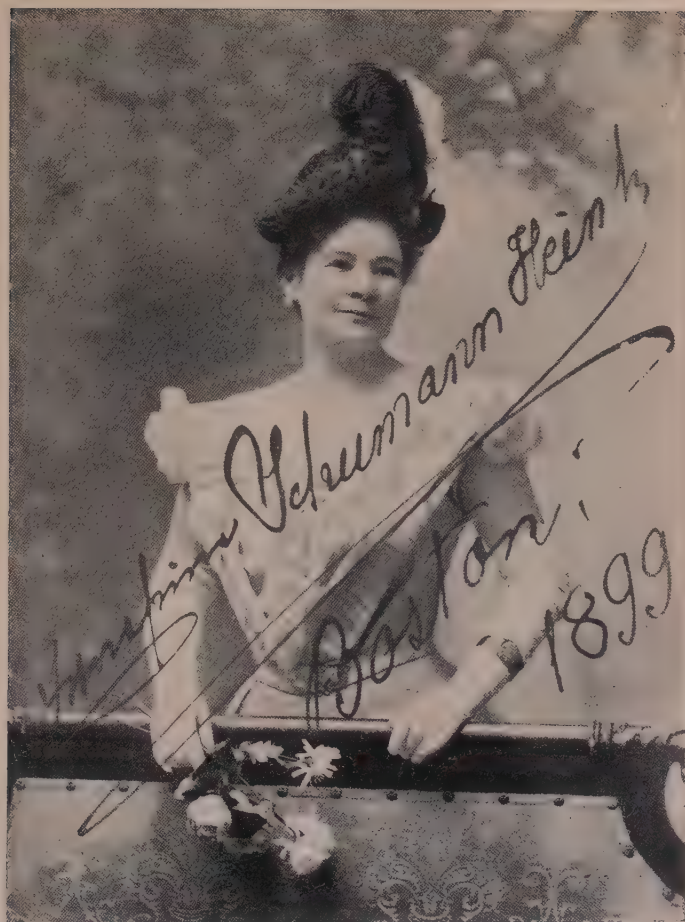 Ernestine Schumann Heink
Boston
1899